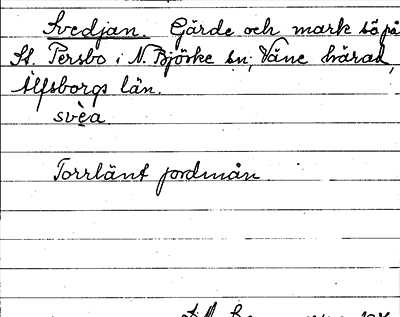 Svedjan. Gärde och mark så på
St. Persbo i N. Björke sn, Väne härad,
Älfsborgs län.
svèa
Torrlänt jordmån